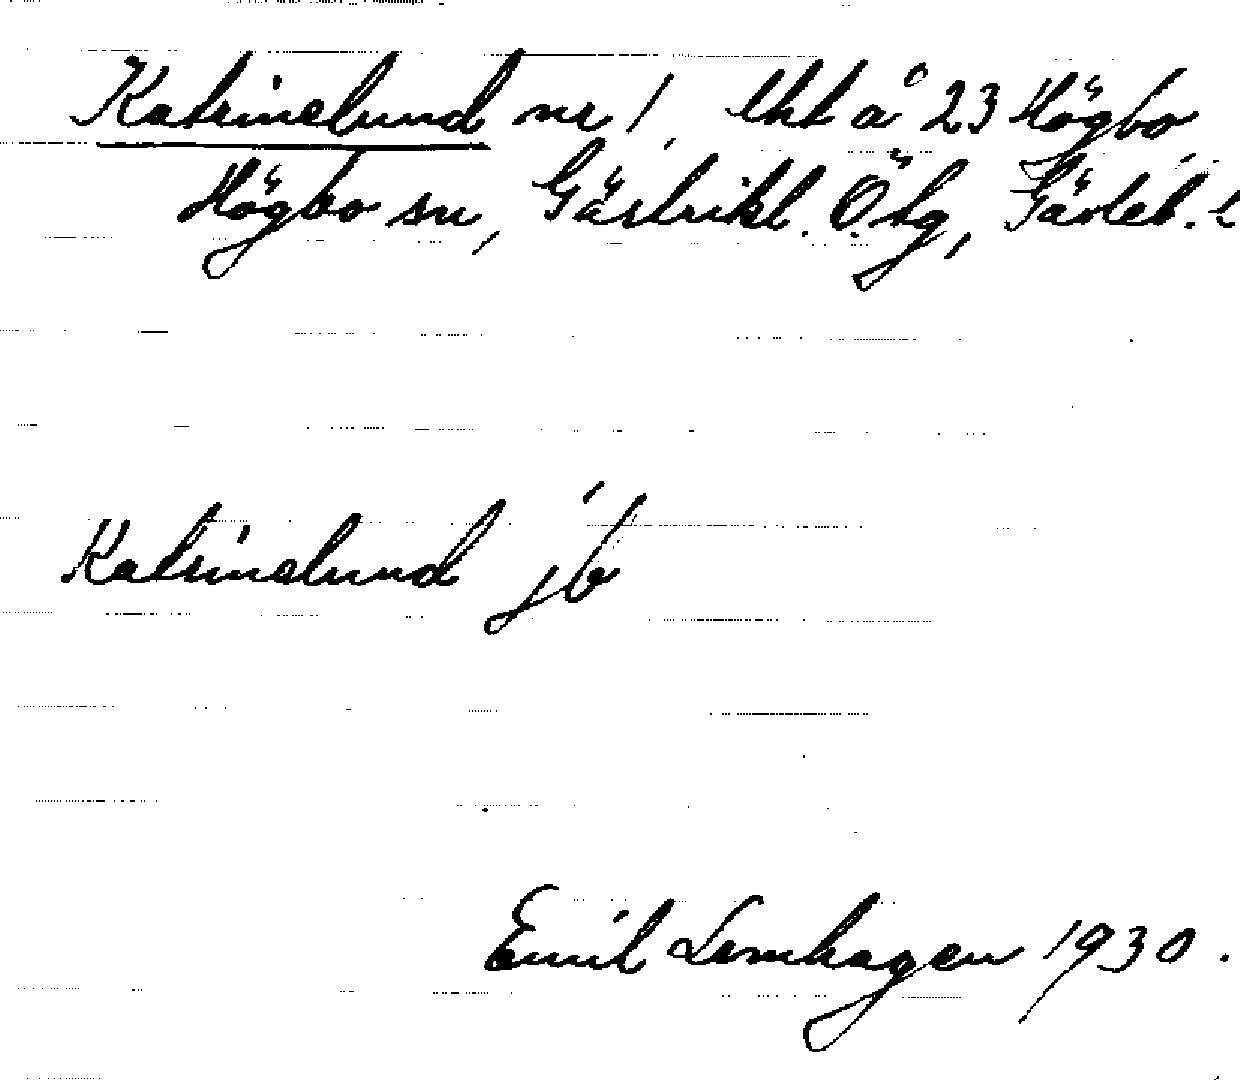 Katrinelund nr 1, lht å 23 Högbo
Högbo sn, Gästrikl. Ö. tg, Gävleb. l
Katrinelund jb
Emil Lernhagen 1930.